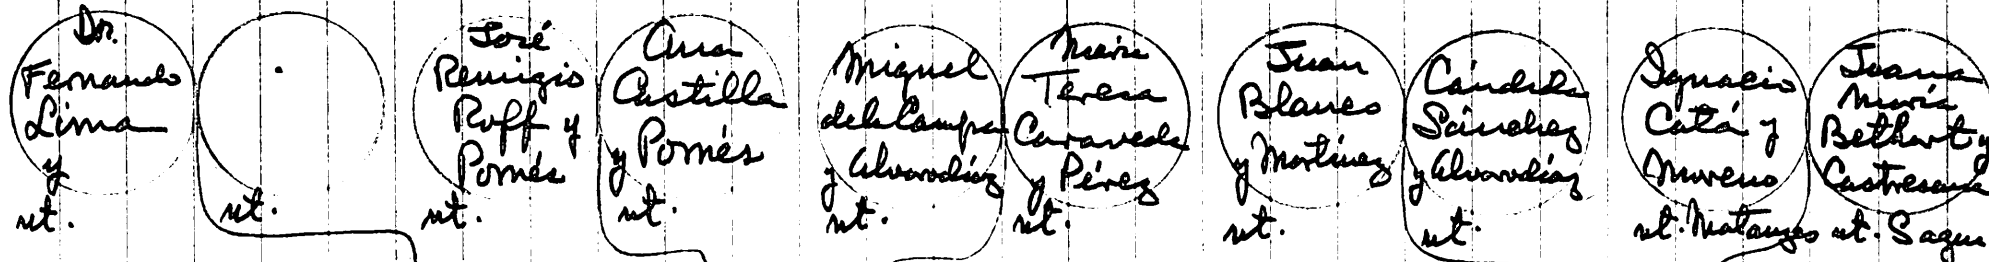 Dr.
Fernando
Lima
y
nt.
nt.
José
Remigio
Roff y
Pomés
nt.
Ana
Castilla
y Pomés
nt.
Miguel
de la Campa
y Alvarodíaz
nt.
María
Teresa
Caraveda
y Pérez
nt.
Juan
Blanco
y Martínez
nt.
Cándida
Sánchez
y Alvarodíaz
nt.
Ignacio
Catá y
Moreno
nt. Matanzas
Juana
María
Bethart y
Castresana
nt. Sagua